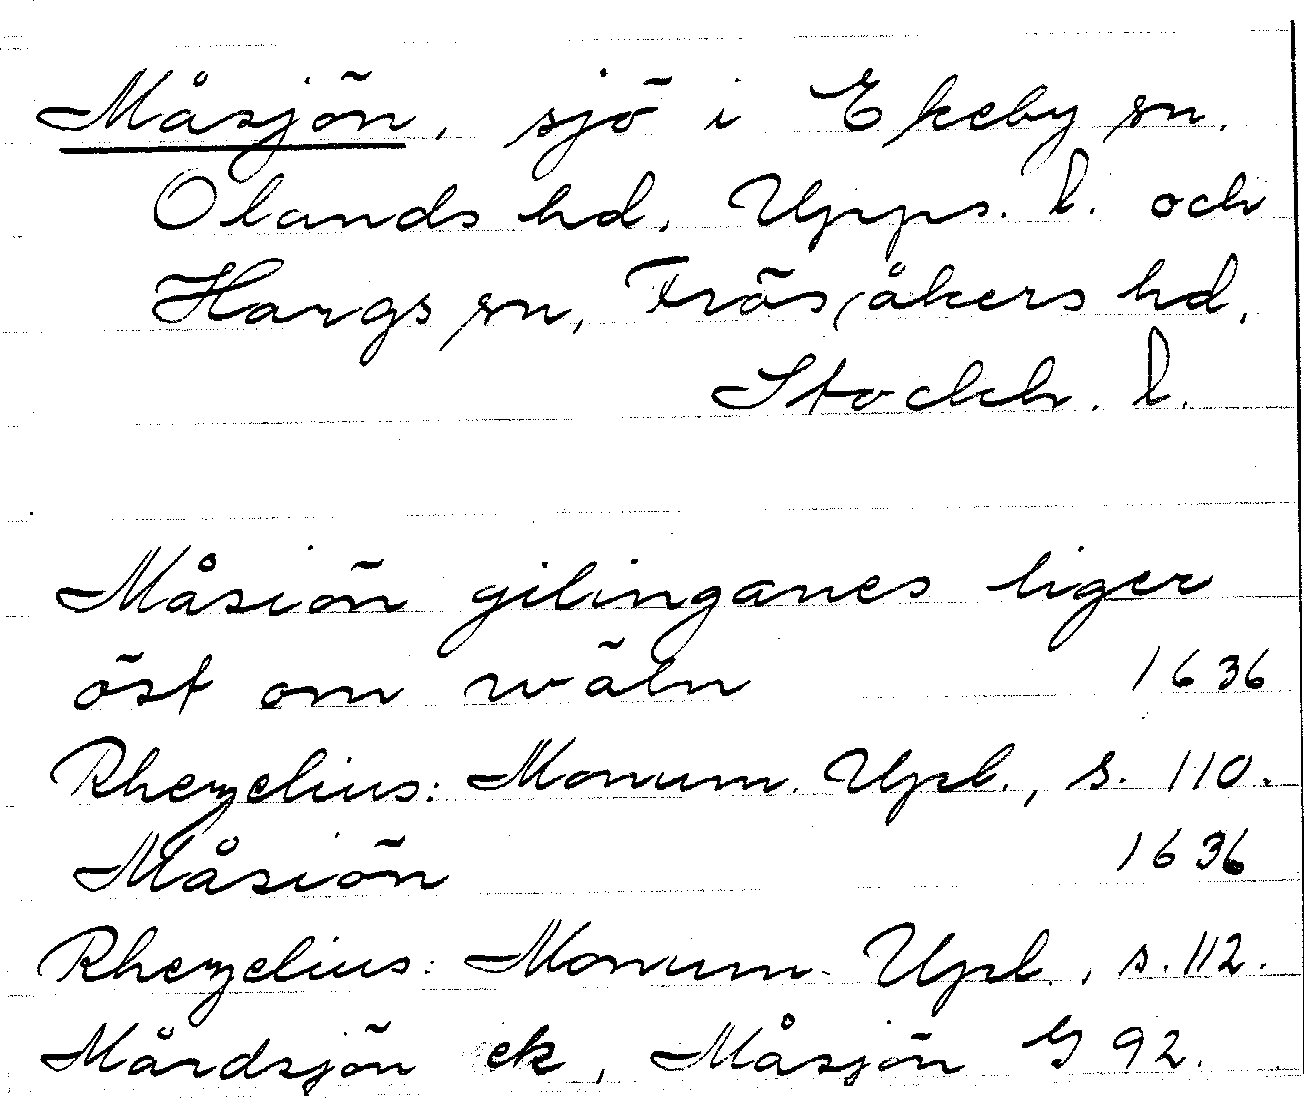 Måsjön, sjö i Ekeby sn.
Olands hd. Upps. l. och
Hargs sn, Frösåkers hd,
Stockh. l.
Måsiön gilinganes liger
öst om wäln 1636
Rhezelius: Monum. Upl., s. 110.
Måsiön 1636
Rhezelius: Monum. Upl., s. 112.
Mårdsjön ek, Måsjön G 92.